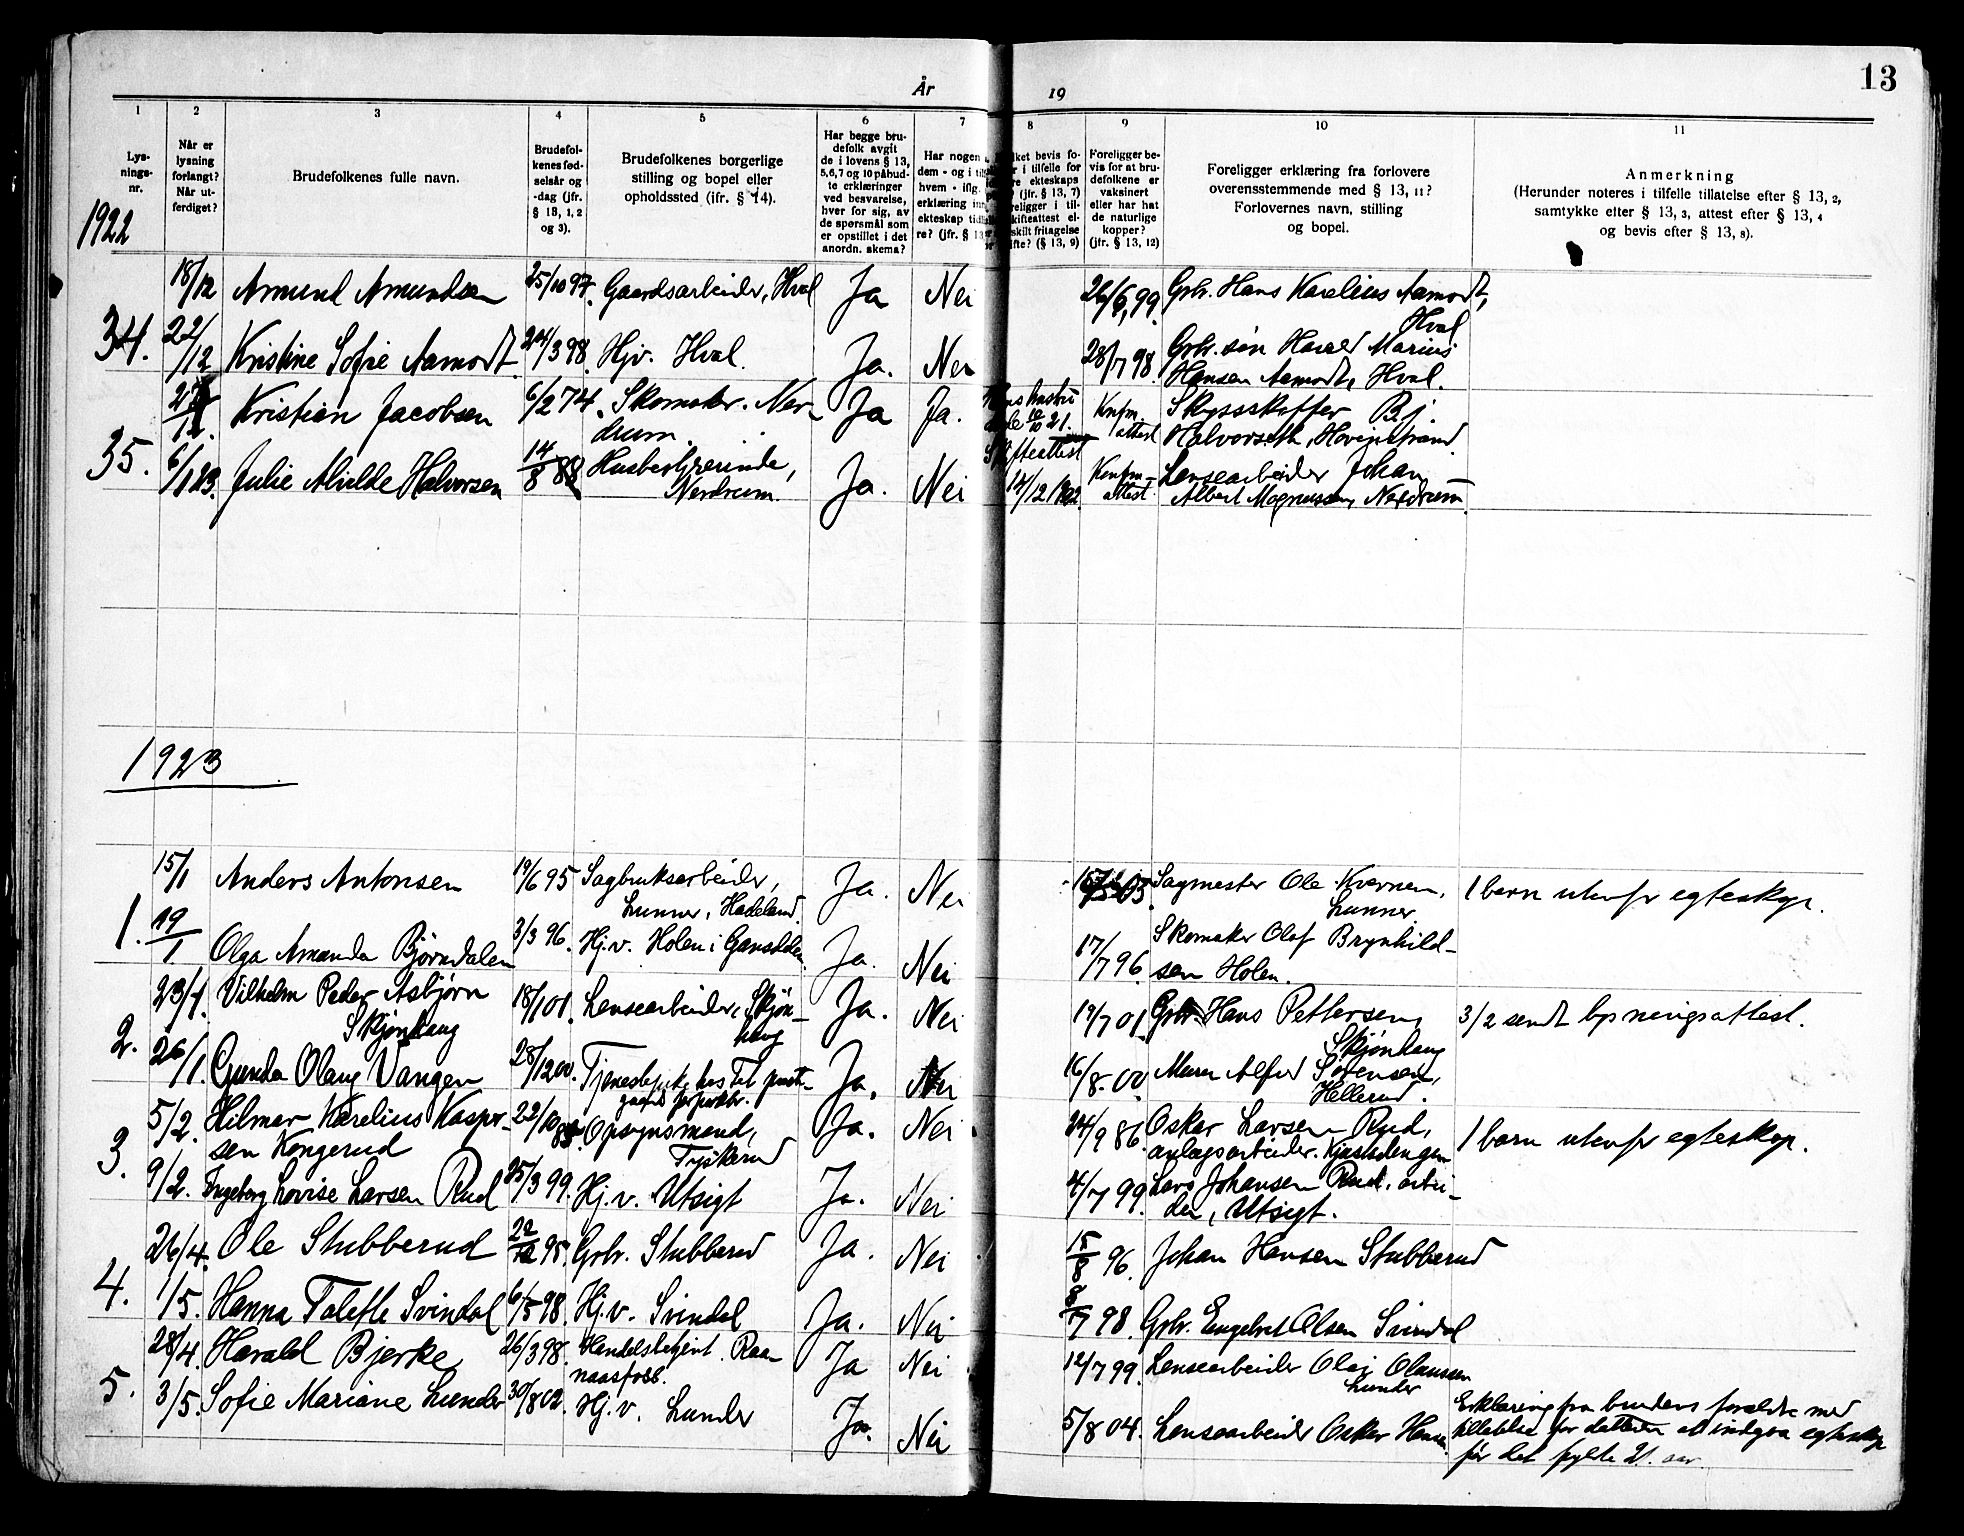 År 19
13
1 2 3 4 5 6 7 8 9 10 11
Lys-
nings-
nr.
Når er
lysning
forlangt?
Når ut-
ferdiget?
Brudefolkenes fulle navn.
Brudefol-
kenes fød-
selsår og
-dag (jfr.
§ 13, 1, 2
og 3).
Brudefolkenes borgerlige
stilling og bopel eller
opholdssted (ifr. § 14).
Har begge bru-
defolk avgit
de i lovens § 13,
5,6,7 og 10 påbud-
te erklæringer
ved besvarelse,
hver for sig, av
de spørsmål som
er opstillet i det
anordn. skema?
Har nogen
dem - og i
hvem - iflg.
erklæring
ekteskap
re? (jfr. §
bevis fo-
r i tilfelle for
ekteskaps
(jfr. § 13, 7)
religger i til-
skifteattest el-
skilt fritagelse
(§ 13, 9)
Foreligger be-
vis for at bru-
defolkene er
vaksinert
eller har hat
de naturlige
kopper?
(jfr. § 13, 12)
Foreligger erklæring fra forlovere
overensstemmende med § 13, 11?
Forlovernes navn, stilling
og bopel.
Anmerkning
(Herunder noteres i tilfelle tillatelse efter § 13, 2,
samtykke efter § 13, 3, attest efter § 13, 4
og bevis efter § 13, 8).
1922
18/12 Amund Amundsen 25/10 97. Gaardsarbeider, Hval Ja Nei 26/6, 99. Grbr. Hans Karelius Aamodt,
Hval
34. 22/12 Kristine Sofie Aamodt 24/3 98. Hjv. Hval. Ja. Nei 28/7 98. Grbr. søn Harald Marius
Hansen Aamodt, Hval.
Kristian Jacobsen 6/2 74. Skomaker. Ner-
drum. Ja Ja. 21. Knfm.
attest Skyssskaffer Bj.
Halvorseth, Hovinstrand.
35. 6/1 23. Julie Alvilde Halvorsen 14/8 88 Husbestyrerinde,
Nerdrum. Ja. Nei Skifteattest
14/12 1922 Konfm-
attest. Lensearbeider Johan
Albert Magnussen, Nerdrum
1923
15/1 Anders Antonsen 19/6 95 Sagbruksarbeider,
Lunner, Hadeland. Ja. Nei Sagmester Ole Kvernen,
Lunner. 1 barn utenfr egteskap.
1. 19/1 Olga Amanda Bjørndalen 3/3 96. Hj.v. Holen i Gansdalen. Ja. Nei 17/7 96. Skomaker Olaf Brynhild-
sen Holen.
23/1. Vilhelm Peder Asbjørn
Skjønhaug 18/1 01. Lensearbeider, Skjøn-
haug Ja. Nei 19/7 01. Grbr. Hans Pettersen,
Skjønhaug 3/2 sendt lysningsattest.
2. 26/1. Gunda Olaug Vangen 28/12 00. Tjenestepike hos
Ja. Nei 16/8. 00. Murer Alfred Sørensen,
Hellerud.
5/2. Hilmar Karelius Kasper-
sen Kongerud 22/10 Opsynsmand,
Tyskerud Ja. Nei 24/9 86. Oskar Larsen Rud,
anlægsarbeider. 1 barn utenfr egteskap.
3. 9/2. Ingeborg Lovise Larsen Rud 25/3 99. Hj.v. Utsigt Ja. Nei 4/7 99. Lars Johansen Rud. arbei-
der, Utsigt.
26/4. Ole Stubberud 95. Grbr. Stubberud Ja. Nei 15/8 96. Johan Hansen Stubberud
4. 1/5. Hanna Tolefle Svindal 6/5 98. Hj.v. Svindal Ja. Nei 8/7 98. Grbr. Engebret Olsen Svindal
28/4. Harald Bjerke 26/3 98. Handelsbetjent. Raa-
naasfoss. Ja Nei 12/7 99. Lensearbeider Olaf Olaussen
Lunder
5. 3/5. Sofie Mariane Lunder 30/8 02. Hj.v. Lunder Ja. Nei 5/8 04. Lensearbeider Oskar Hansen. Erklæring fra brudens forældre med
tillatelse for datteren at indgaa egteskap
før det fylte 21. aar.